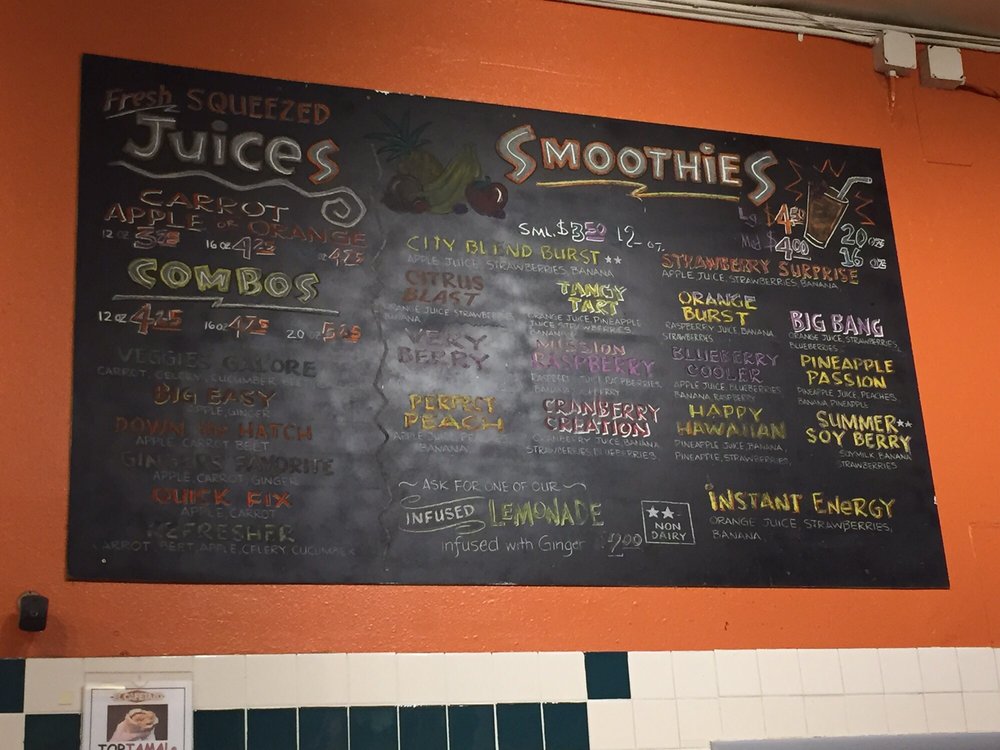 Fresh SQUEEZED
Juices
CARROT
APPLE or ORANGE
12 oz 3.25 16 oz 4.25 oz 4.75
COMBOS
12 oz 4.25 16 oz 4.75 20 oz 5.25
VEGGIES GALORE
CARROT, CELERY, CUCUMBER
BIG EASY
APPLE, GINGER
DOWN the HATCH
APPLE, CARROT, BEET
GINGER'S FAVORITE
APPLE, CARROT, GINGER
QUICK FIX
APPLE, CARROT
REFRESHER
CARROT, BEET, APPLE, CELERY, CUCUMBER
SMOOTHiES
Lg $4.50 20 ozs
SML $3.50 12 oz.
Md $4.00 16 ozs
CITY BLEND BURST **
APPLE JUICE, STRAWBERRIES, BANANA
STRAWBERRY SURPRISE
APPLE JUICE, STRAWBERRIES, BANANA
CITRUS
BLAST
ORANGE JUICE, STRAWBERRIES
BANANA
TANGY
TART
ORANGE JUICE, PINEAPPLE
JUICE, STRAWBERRIES
BANANA
ORANGE
BURST
RASPBERRY JUICE, BANANA
STRAWBERRIES
BIG BANG
ORANGE JUICE, STRAWBERRIES,
BLUEBERRIES
VERY
BERRY
MISSION
RASPBERRY
RASPBERRY JUICE, RASPBERRIES,
BANANA
BLUEBERRY
COOLER
APPLE JUICE, BLUEBERRIES
BANANA, RASPBERRY
PINEAPPLE
PASSION
PINEAPPLE JUICE, PEACHES,
BANANA, PINEAPPLE
PERFECT
PEACH
APPLE JUICE,
BANANA
CRANBERRY
CREATION
CRANBERRY JUICE, BANANA
STRAWBERRIES, BLUEBERRIES
HAPPY
HAWAIIAN
PINEAPPLE JUICE, BANANA,
PINEAPPLE, STRAWBERRIES
SUMMER **
SOY BERRY
SOYMILK, BANANA
STRAWBERRIES
~ ASK FOR ONE OF OUR ~
INFUSED LEMONADE
infused with Ginger $2.00
** NON
DAIRY
iNSTANT ENeRGY
ORANGE JUICE, STRAWBERRIES,
BANANA
TORTAMALE